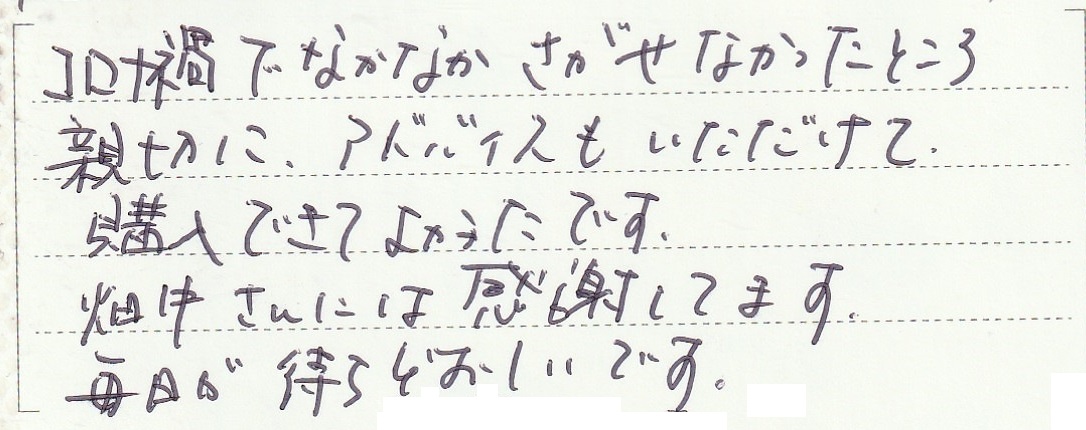 コロナ禍でなかなかさがせなかったところ
親切に、アドバイスもいただけて、
購入できてよかったです。
畑中さんには感謝してます。
毎日が待ちどおしいです。